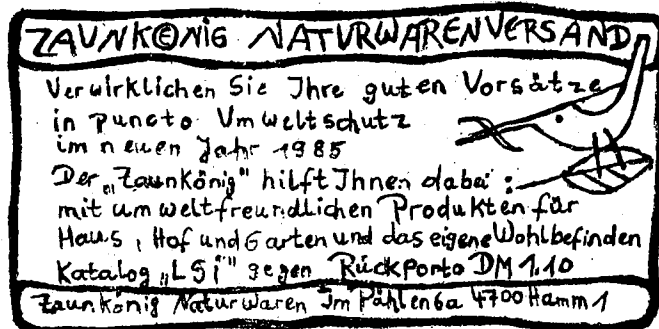 ZAUNKÖNIG NATURWARENVERSAND
Verwirklichen Sie Ihre guten Vorsätze
in puncto Umweltschutz
im neuen Jahr 1985
Der „Zaunkönig" hilft Ihnen dabei:
mit umweltfreundlichen Produkten für
Haus, Hof und Garten und das eigene Wohlbefinden
Katalog „LSi" gegen Rückporto DM 1.10
Zaunkönig Naturwaren Im Pählen 6a 4700 Hamm 1